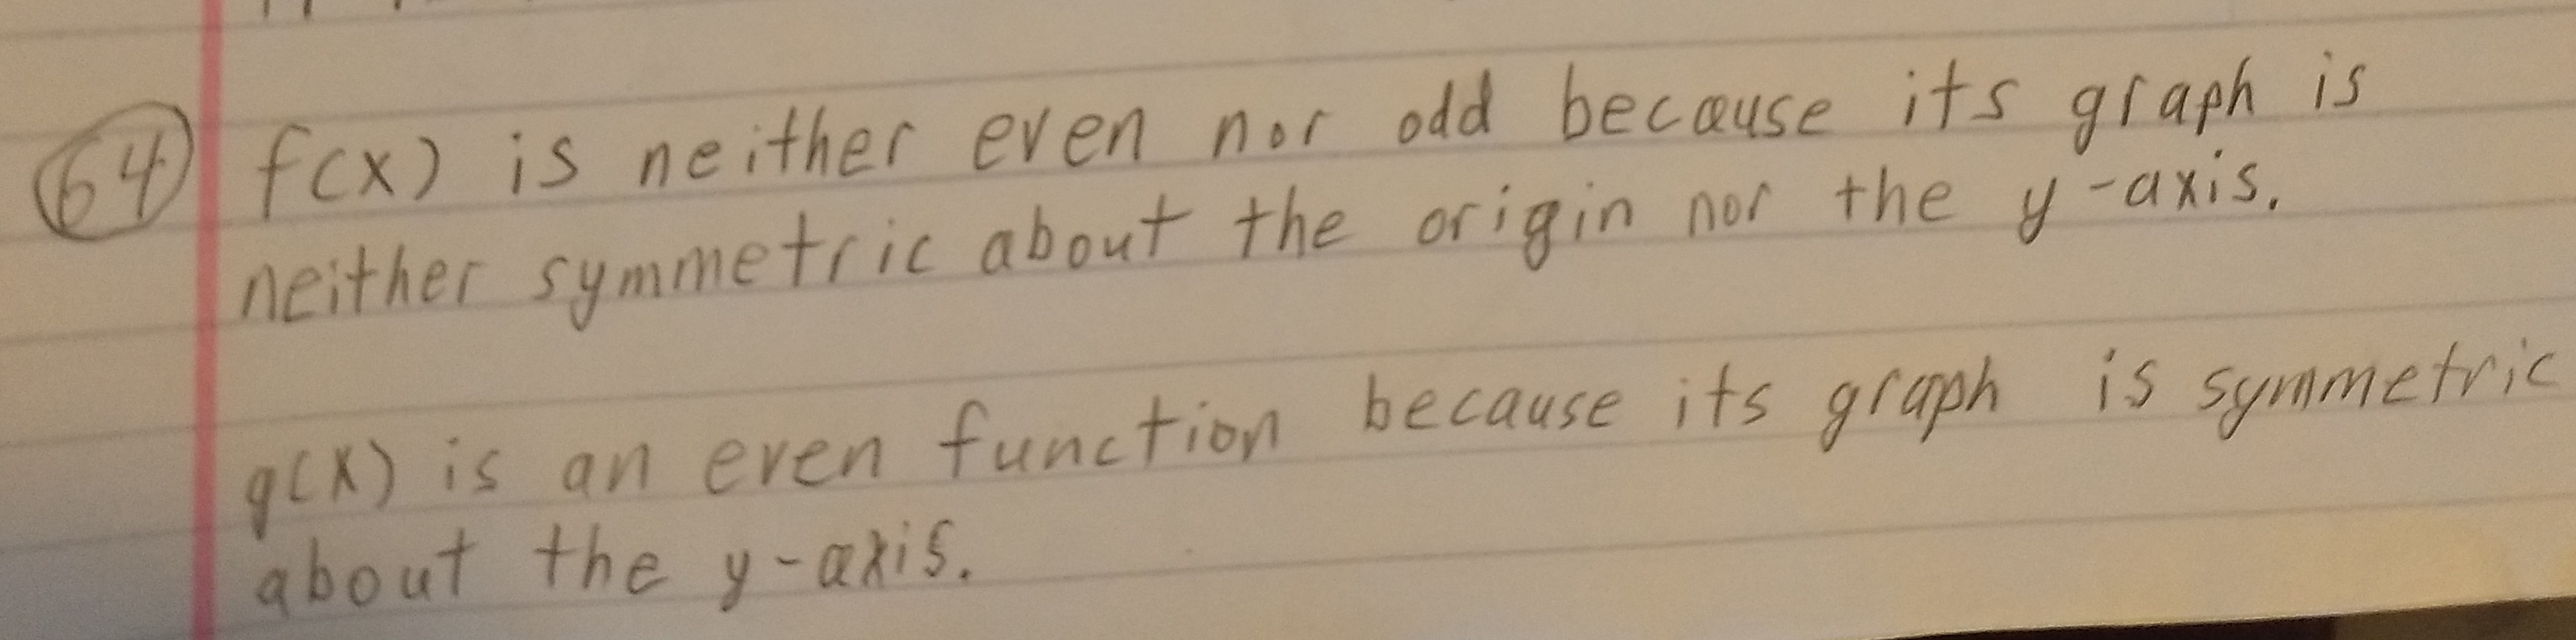 64 f(x) is neither even nor odd because its graph is
neither symmetric about the origin nor the y-axis.
g(x) is an even function because its graph is symmetric
about the y-axis.